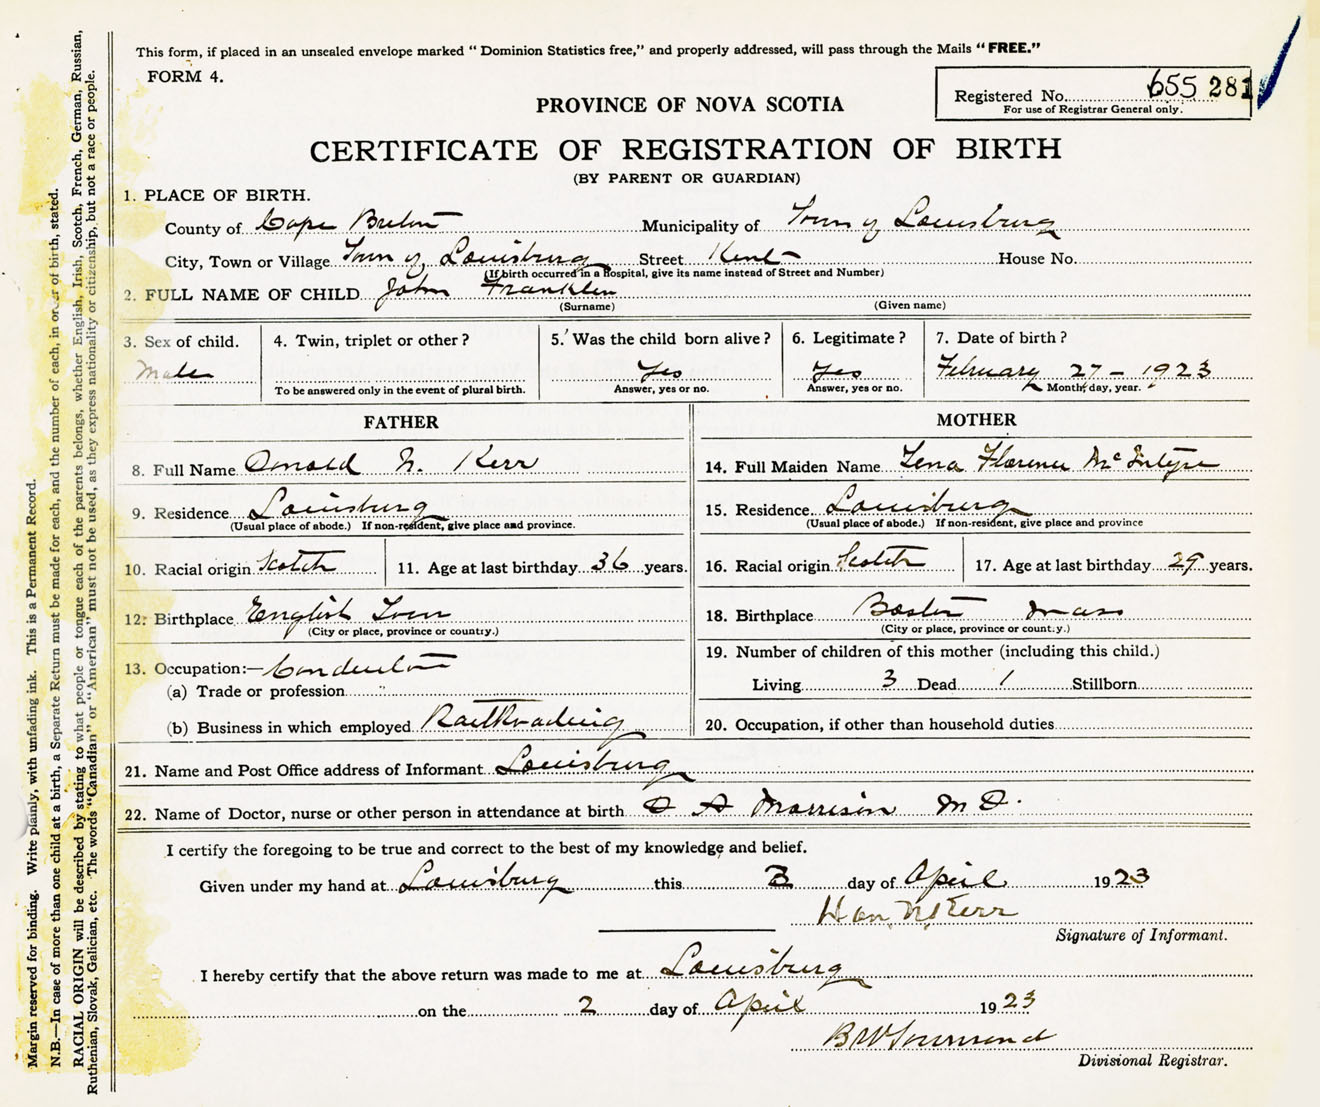 This form, if placed in an unsealed envelope marked "Dominion Statistics free," and properly addressed, will pass through the Mails "FREE."
FORM 4.
Registered No. 655 281
For use of Registrar General only.
PROVINCE OF NOVA SCOTIA
CERTIFICATE OF REGISTRATION OF BIRTH
(BY PARENT OR GUARDIAN)
1. PLACE OF BIRTH.
County of Cape Breton Municipality of Town of Louisburg
City, Town or Village Town of Louisburg Street Kent House No.
(If birth occurred in a Hospital, give its name instead of Street and Number)
2. FULL NAME OF CHILD John Franklin
(Surname) (Given name)
3. Sex of child. 4. Twin, triplet or other? 5. Was the child born alive? 6. Legitimate? 7. Date of birth?
Male Yes Yes February 27 - 1923
To be answered only in the event of plural birth. Answer, yes or no. Answer, yes or no. Month, day, year.
FATHER
8. Full Name Donald N. Kerr
9. Residence Louisburg
(Usual place of abode.) If non-resident, give place and province.
10. Racial origin Scotch 11. Age at last birthday 36 years.
12. Birthplace English Town
(City or place, province or country.)
13. Occupation:— Conductor
(a) Trade or profession "
(b) Business in which employed Railroading
MOTHER
14. Full Maiden Name Lena Florence McIntyre
15. Residence Louisburg
(Usual place of abode.) If non-resident, give place and province
16. Racial origin Scotch 17. Age at last birthday 29 years.
18. Birthplace Boston Mass
(City or place, province or country.)
19. Number of children of this mother (including this child.)
Living 3 Dead 1 Stillborn
20. Occupation, if other than household duties
21. Name and Post Office address of Informant Louisburg
22. Name of Doctor, nurse or other person in attendance at birth D A Morrison M D.
I certify the foregoing to be true and correct to the best of my knowledge and belief.
Given under my hand at Louisburg this day of April 1923
Kerr
Signature of Informant.
I hereby certify that the above return was made to me at Louisburg
on the 2 day of April 1923
B W Townsend
Divisional Registrar.
Margin reserved for binding. Write plainly, with unfading ink. This is a Permanent Record.
N.B.—In case of more than one child at a birth, a Separate Return must be made for each, and the number of each, in order of birth, stated.
RACIAL ORIGIN will be described by stating to what people or tongue each of the parents belongs, whether English, Irish, Scotch, French, German, Russian,
Ruthenian, Slovak, Galician, etc. The words "Canadian" or "American" must not be used, as they express nationality or citizenship, but not a race or people.